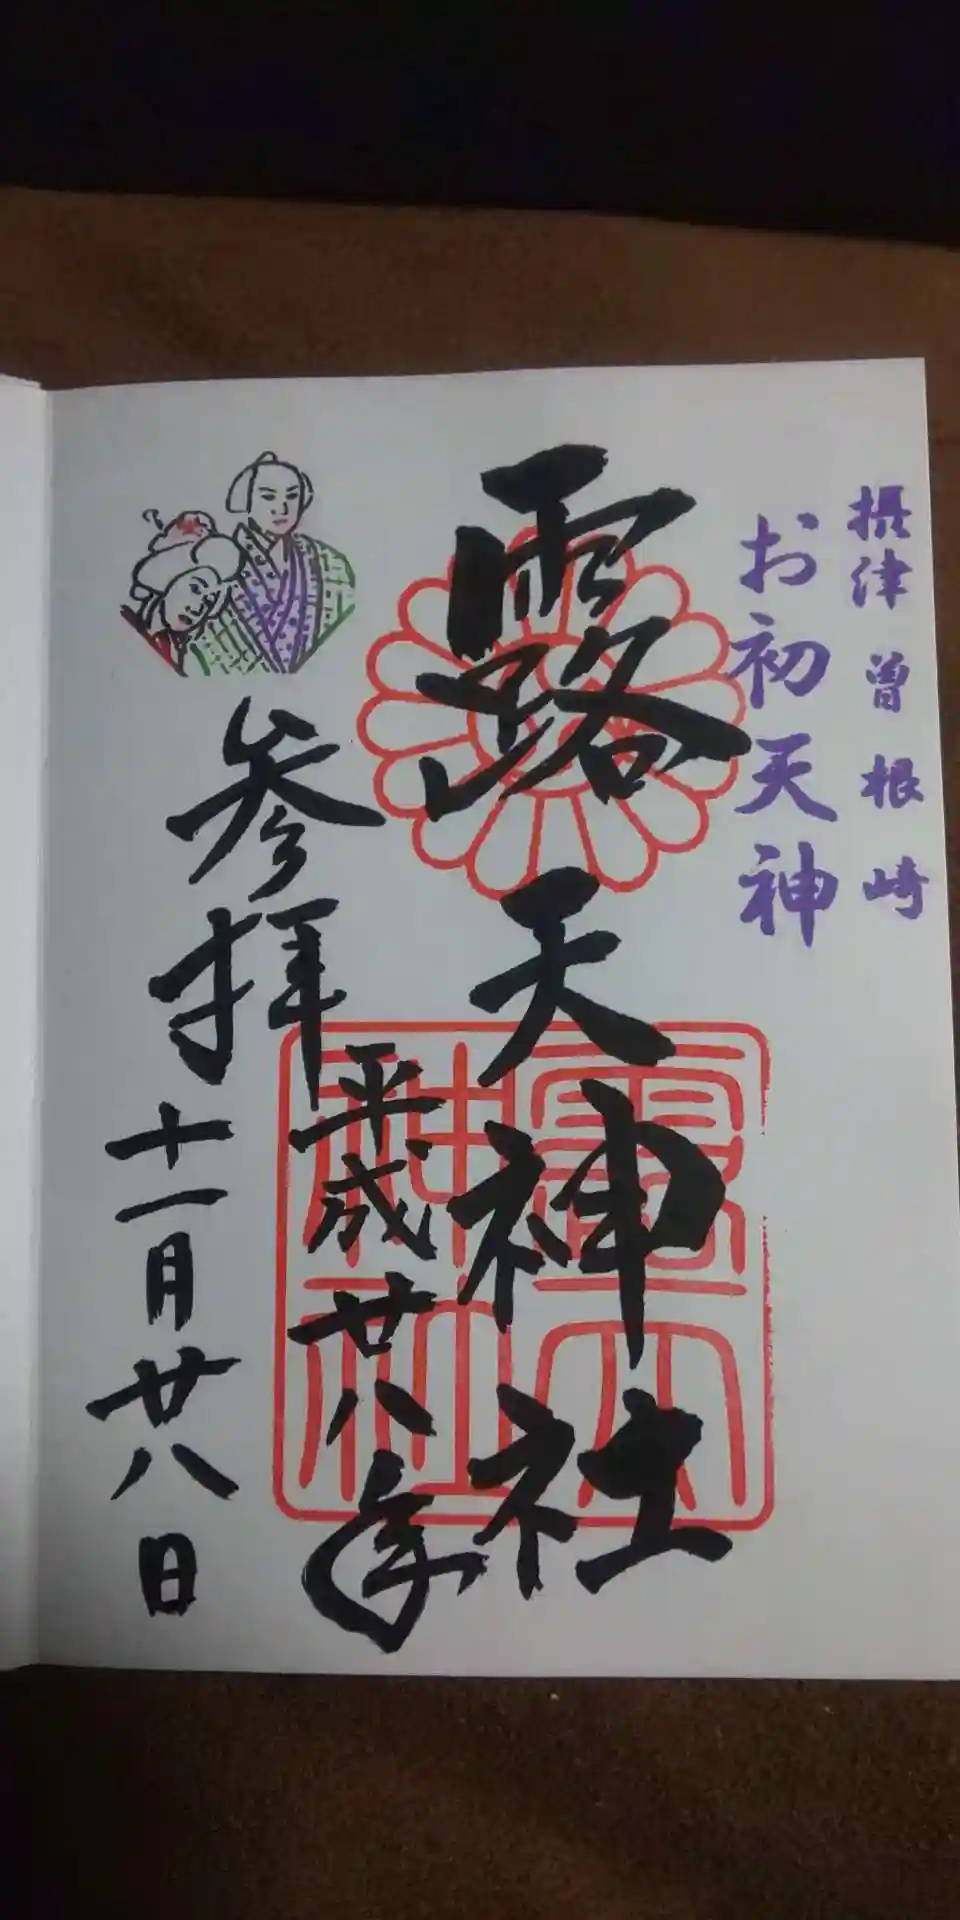 摂津 曽根崎
お初天神
露天神社
平成廿八年
参拝
十一月廿八日
露天
神社